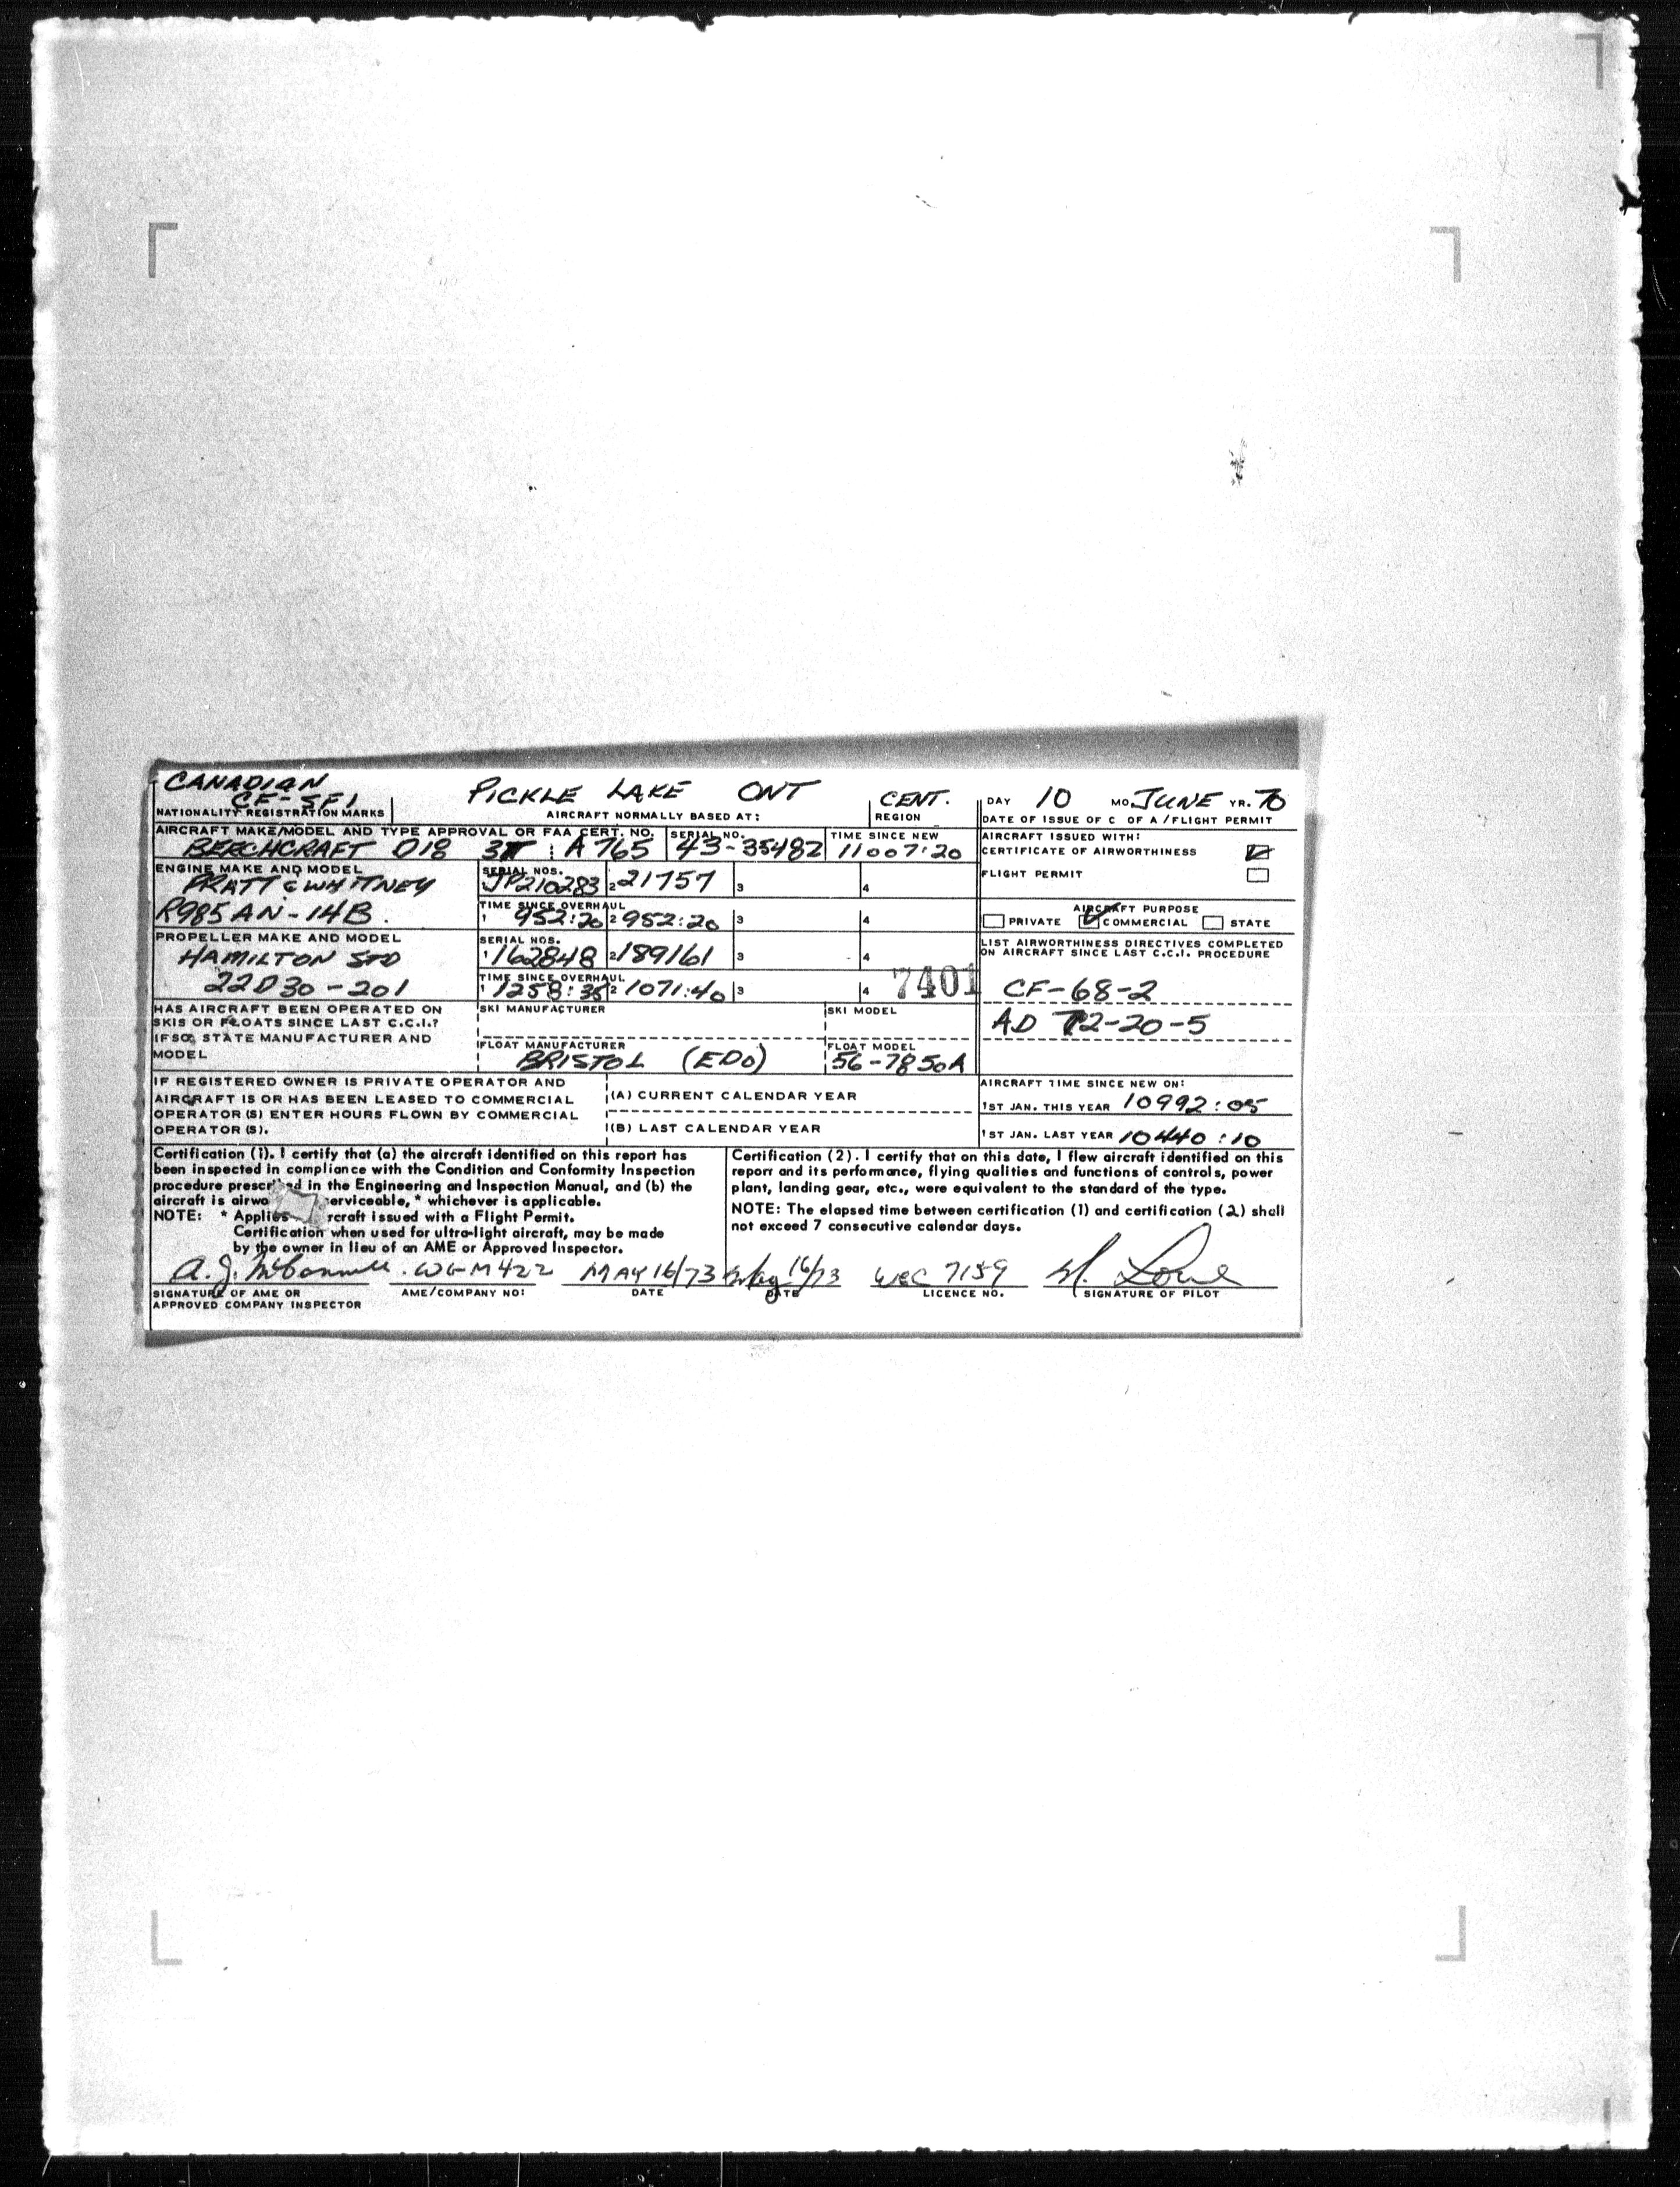 CANADIAN
CF-SFI PICKLE LAKE ONT CENT. DAY 10 MO. JUNE YR. 70
NATIONALITY REGISTRATION MARKS AIRCRAFT NORMALLY BASED AT: REGION DATE OF ISSUE OF C OF A / FLIGHT PERMIT
AIRCRAFT MAKE/MODEL AND TYPE APPROVAL OR FAA CERT. NO. SERIAL NO. TIME SINCE NEW AIRCRAFT ISSUED WITH:
BEECHCRAFT D18 A 765 43-35482 11007:20 CERTIFICATE OF AIRWORTHINESS
ENGINE MAKE AND MODEL SERIAL NOS. FLIGHT PERMIT
PRATT & WHITNEY JP210283 2 21757 3 4
R985 AN-14B. TIME SINCE OVERHAUL AIRCRAFT PURPOSE
1 952:20 2 952:20 3 4 PRIVATE COMMERCIAL STATE
PROPELLER MAKE AND MODEL SERIAL NOS. LIST AIRWORTHINESS DIRECTIVES COMPLETED
HAMILTON STD 1 162848 2 189161 3 4 ON AIRCRAFT SINCE LAST C.C.I. PROCEDURE
22D30-201 TIME SINCE OVERHAUL
1 1258:35 2 1071:40 3 4 7401 CF-68-2
HAS AIRCRAFT BEEN OPERATED ON SKI MANUFACTURER SKI MODEL
SKIS OR FLOATS SINCE LAST C.C.I.? AD 72-20-5
IF SO, STATE MANUFACTURER AND FLOAT MANUFACTURER FLOAT MODEL
MODEL BRISTOL (EDO) 56-7850A
IF REGISTERED OWNER IS PRIVATE OPERATOR AND AIRCRAFT TIME SINCE NEW ON:
AIRCRAFT IS OR HAS BEEN LEASED TO COMMERCIAL (A) CURRENT CALENDAR YEAR 1ST JAN. THIS YEAR 10992:05
OPERATOR (S) ENTER HOURS FLOWN BY COMMERCIAL
OPERATOR (S). (B) LAST CALENDAR YEAR 1ST JAN. LAST YEAR 10440:10
Certification (1). I certify that (a) the aircraft identified on this report has
been inspected in compliance with the Condition and Conformity Inspection
procedure in the Engineering and Inspection Manual, and (b) the
aircraft is * whichever is applicable.
NOTE: * issued with a Flight Permit.
Certification when used for ultra-light aircraft, may be made
by the owner in lieu of an AME or Approved Inspector.
Certification (2). I certify that on this date, I flew aircraft identified on this
report and its performance, flying qualities and functions of controls, power
plant, landing gear, etc., were equivalent to the standard of the type.
NOTE: The elapsed time between certification (1) and certification (2) shall
not exceed 7 consecutive calendar days.
A. J. McConnell WGM422 MAY 16/73 May 16/73 WEC 7159 Lowe
SIGNATURE OF AME OR AME/COMPANY NO: DATE DATE LICENCE NO. SIGNATURE OF PILOT
APPROVED COMPANY INSPECTOR